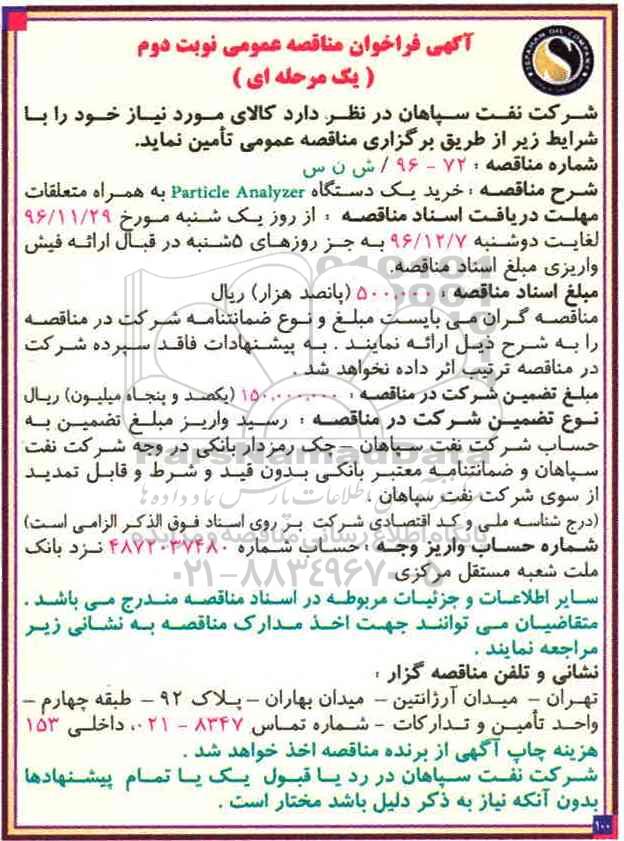 SEPAHAN OIL COMPANY
آگهی فراخوان مناقصه عمومی نوبت دوم
( یک مرحله ای )
شرکت نفت سپاهان در نظر دارد کالای مورد نیاز خود را با
شرایط زیر از طریق برگزاری مناقصه عمومی تأمین نماید.
شماره مناقصه : ۷۲ - ۹۶ / ش ن س
شرح مناقصه : خرید یک دستگاه Particle Analyzer به همراه متعلقات
مهلت دریافت اسناد مناقصه : از روز یک شنبه مورخ ۹۶/۱۱/۲۹
لغایت دوشنبه ۹۶/۱۲/۷ به جز روزهای ۵شنبه در قبال ارائه فیش
واریزی مبلغ اسناد مناقصه.
مبلغ اسناد مناقصه : ۵۰۰،۰۰۰ (پانصد هزار) ریال
مناقصه گران می بایست مبلغ و نوع ضمانتنامه شرکت در مناقصه
را به شرح ذیل ارائه نمایند . به پیشنهادات فاقد سپرده شرکت
در مناقصه ترتیب اثر داده نخواهد شد .
مبلغ تضمین شرکت در مناقصه : ۱۵۰،۰۰۰،۰۰۰ (یکصد و پنجاه میلیون) ریال
نوع تضمین شرکت در مناقصه : رسید واریز مبلغ تضمین به
حساب شرکت نفت سپاهان – چک رمزدار بانکی در وجه شرکت نفت
سپاهان و ضمانتنامه معتبر بانکی بدون قید و شرط و قابل تمدید
از سوی شرکت نفت سپاهان .
(درج شناسه ملی و کد اقتصادی شرکت بر روی اسناد فوق الذکر الزامی است)
شماره حساب واریز وجه : حساب شماره ۴۸۷۲۰۳۷۴۸۰ نزد بانک
ملت شعبه مستقل مرکزی
سایر اطلاعات و جزئیات مربوطه در اسناد مناقصه مندرج می باشد .
متقاضیان می توانند جهت اخذ مدارک مناقصه به نشانی زیر
مراجعه نمایند .
نشانی و تلفن مناقصه گزار :
تهران – میدان آرژانتین – میدان بهاران – پلاک ۹۲ – طبقه چهارم –
واحد تأمین و تدارکات – شماره تماس ۸۳۴۷ - ۰۲۱، داخلی ۱۵۳
هزینه چاپ آگهی از برنده مناقصه اخذ خواهد شد .
شرکت نفت سپاهان در رد یا قبول یک یا تمام پیشنهادها
بدون آنکه نیاز به ذکر دلیل باشد مختار است .
۱۰۰
ParsNamadData
پایگاه اطلاع رسانی مناقصه و مزایده
۰۲۱-۸۸۳۴۹۶۷۰-۵